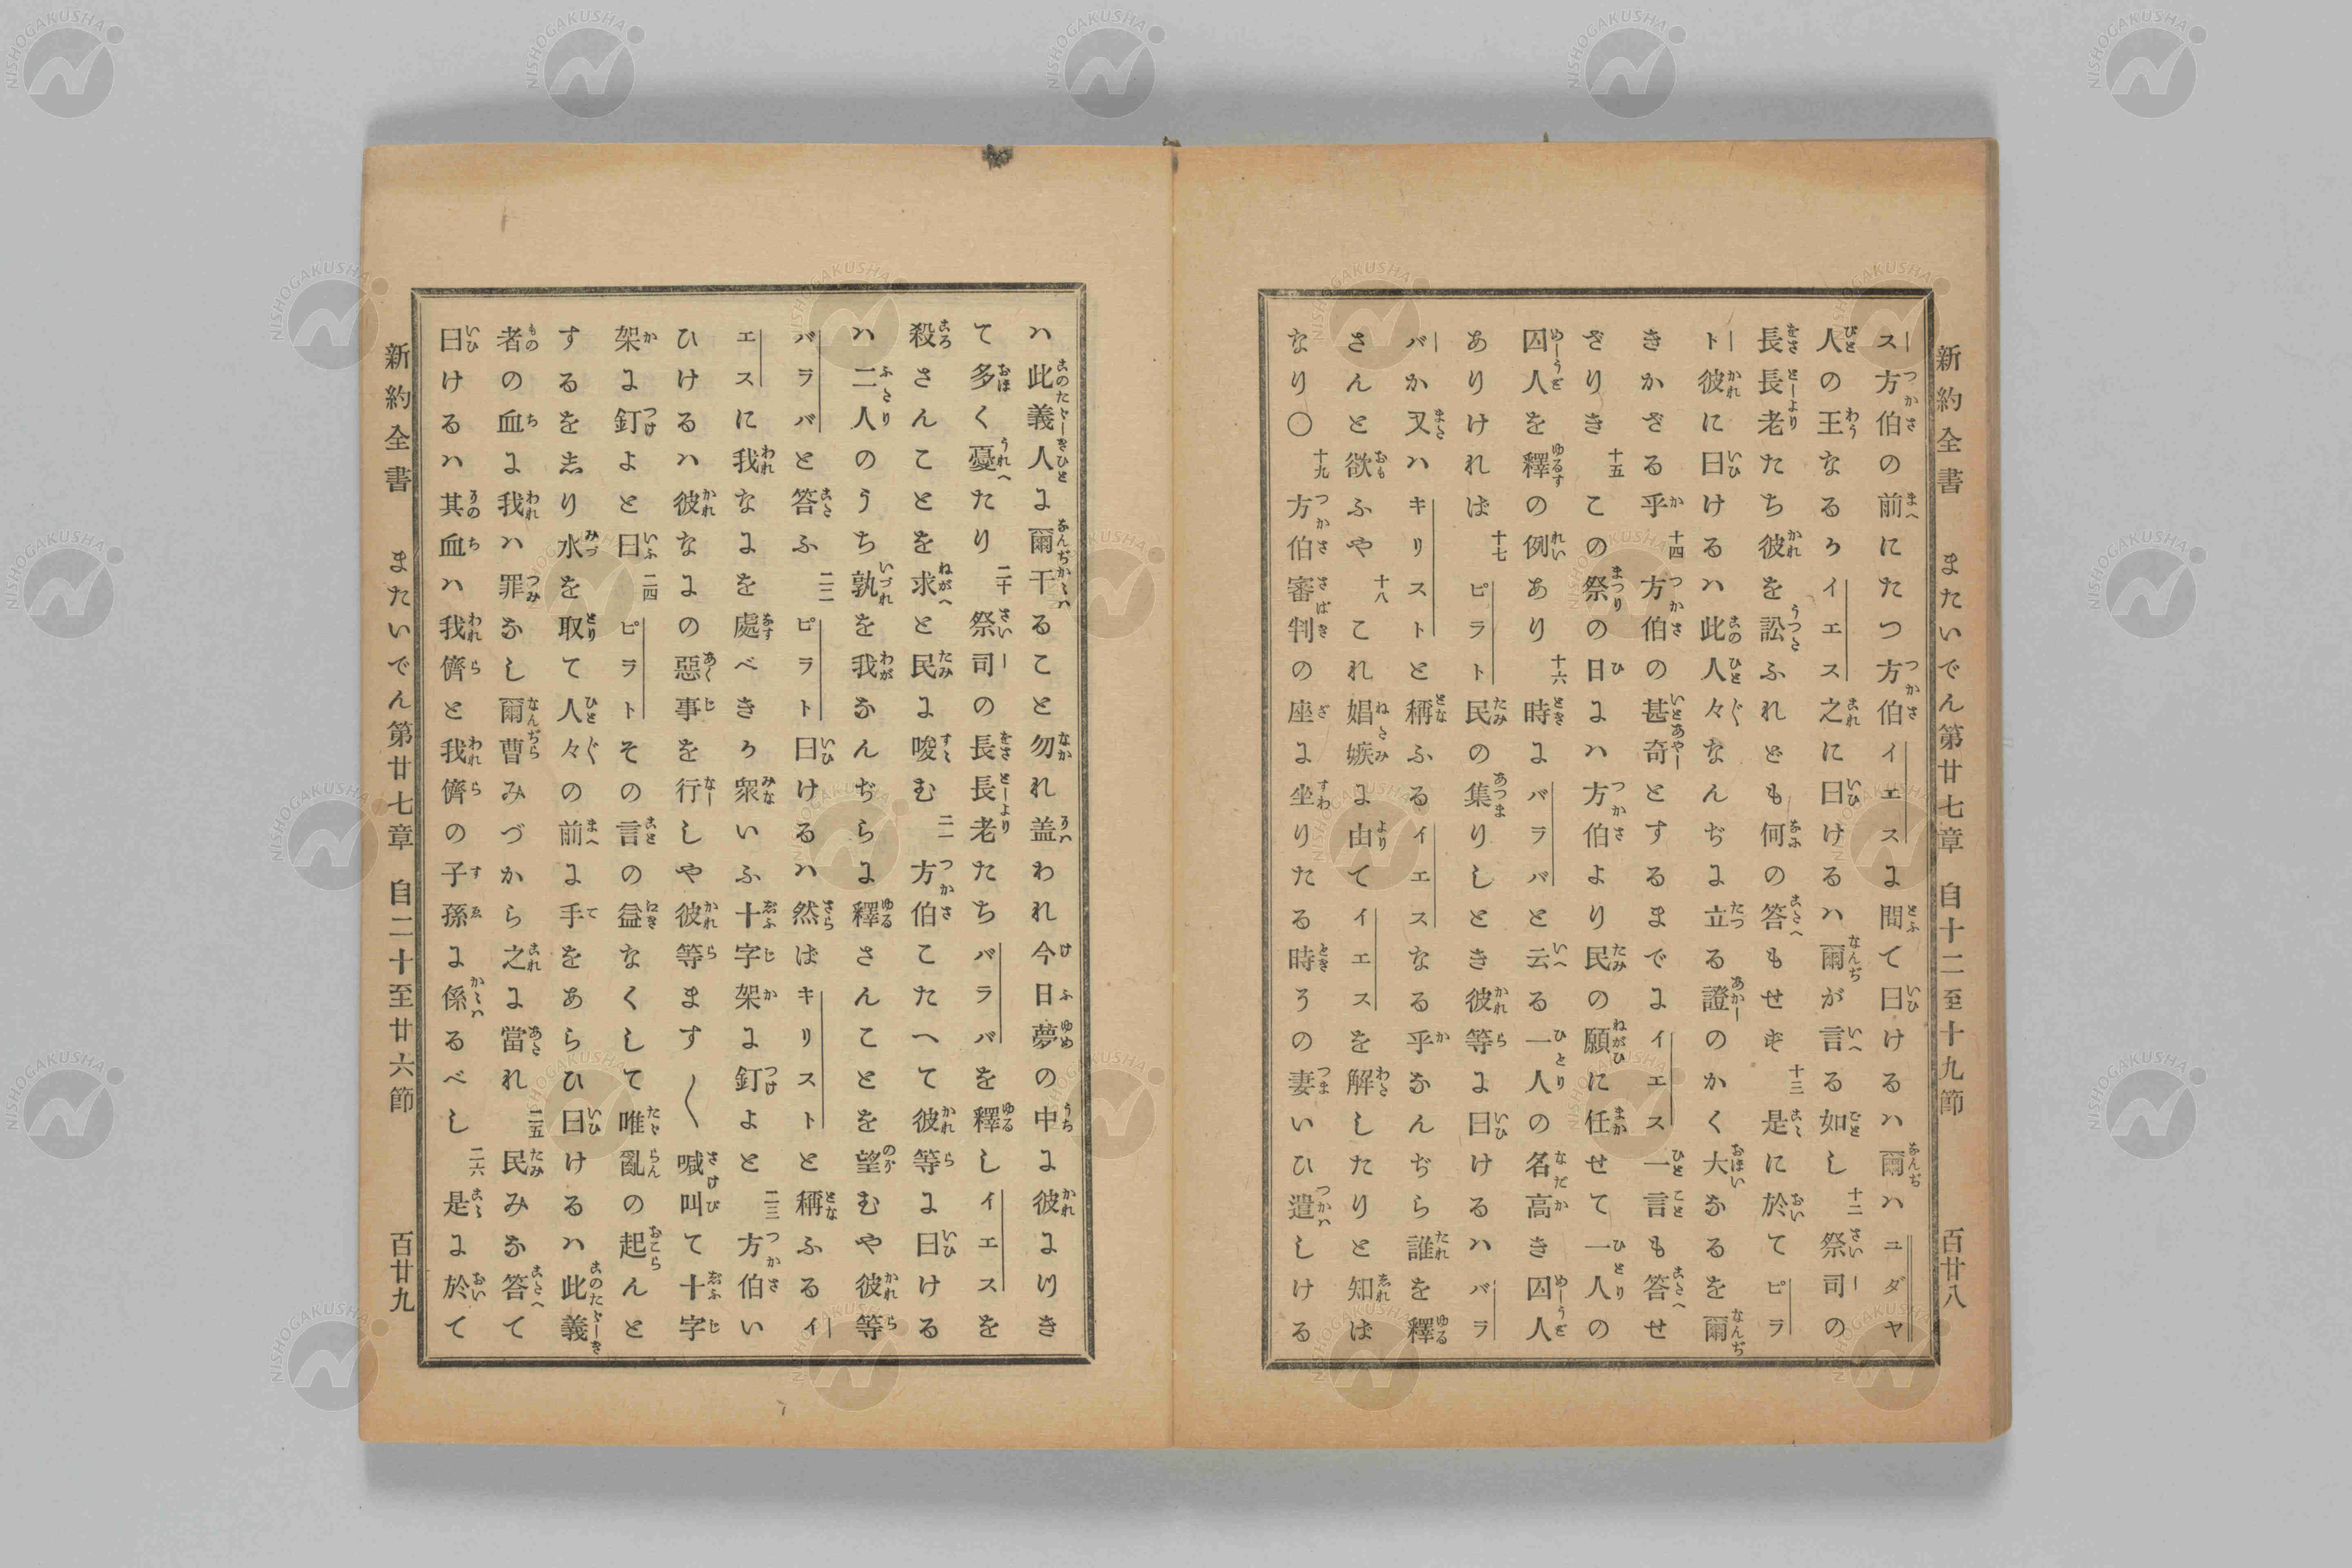 新約全書 またいでん第廿七章 自十二至十九節 百廿八
ス方伯の前にたつ方伯イエスに問て曰けるハ爾ハユダヤ
人の王なるかイエス之に曰けるハ爾が言る如し 十二 祭司の
長長老たち彼を訟ふれども何の答もせず 十三 是に於てピラ
ト彼に曰けるハ此人々なんぢに立る證のかく大なるを爾
きかざる乎 十四 方伯の甚奇とするまでにイエス一言も答せ
ざりき 十五 この祭の日にハ方伯より民の願に任せて一人の
囚人を釋の例あり 十六 時にバラバと云る一人の名高き囚人
ありければ 十七 ピラト民の集りしとき彼等に曰けるハバラ
バか又ハキリストと稱ふるイエスなる乎なんぢら誰を釋
さんと欲ふや 十八 これ娼嫉に由てイエスを解したりと知ば
なり〇 十九 方伯審判の座に坐りたる時その妻いひ遣しける
ハ此義人に爾干ること勿れ盖われ今日夢の中に彼によりき
て多く憂たり 二十 祭司の長長老たちバラバを釋しイエスを
殺さんことを求と民に唆む 二一 方伯こたへて彼等に曰ける
ハ二人のうち孰を我なんぢらに釋さんことを望むや彼等
バラバと答ふ 二二 ピラト曰けるハ然ばキリストと稱ふるイ
エスに我なにを處べきか衆いふ十字架に釘よと 二三 方伯い
ひけるハ彼なにの惡事を行しや彼等ます〱喊叫て十字
架に釘よと曰 二四 ピラトその言の益なくして唯亂の起んと
するを志り水を取て人々の前に手をあらひ曰けるハ此義
者の血に我ハ罪なし爾曹みづから之に當れ 二五 民みな答て
曰けるハ其血ハ我儕と我儕の子孫に係るべし 二六 是に於て
新約全書 またいでん第廿七章 自二十至廿六節 百廿九